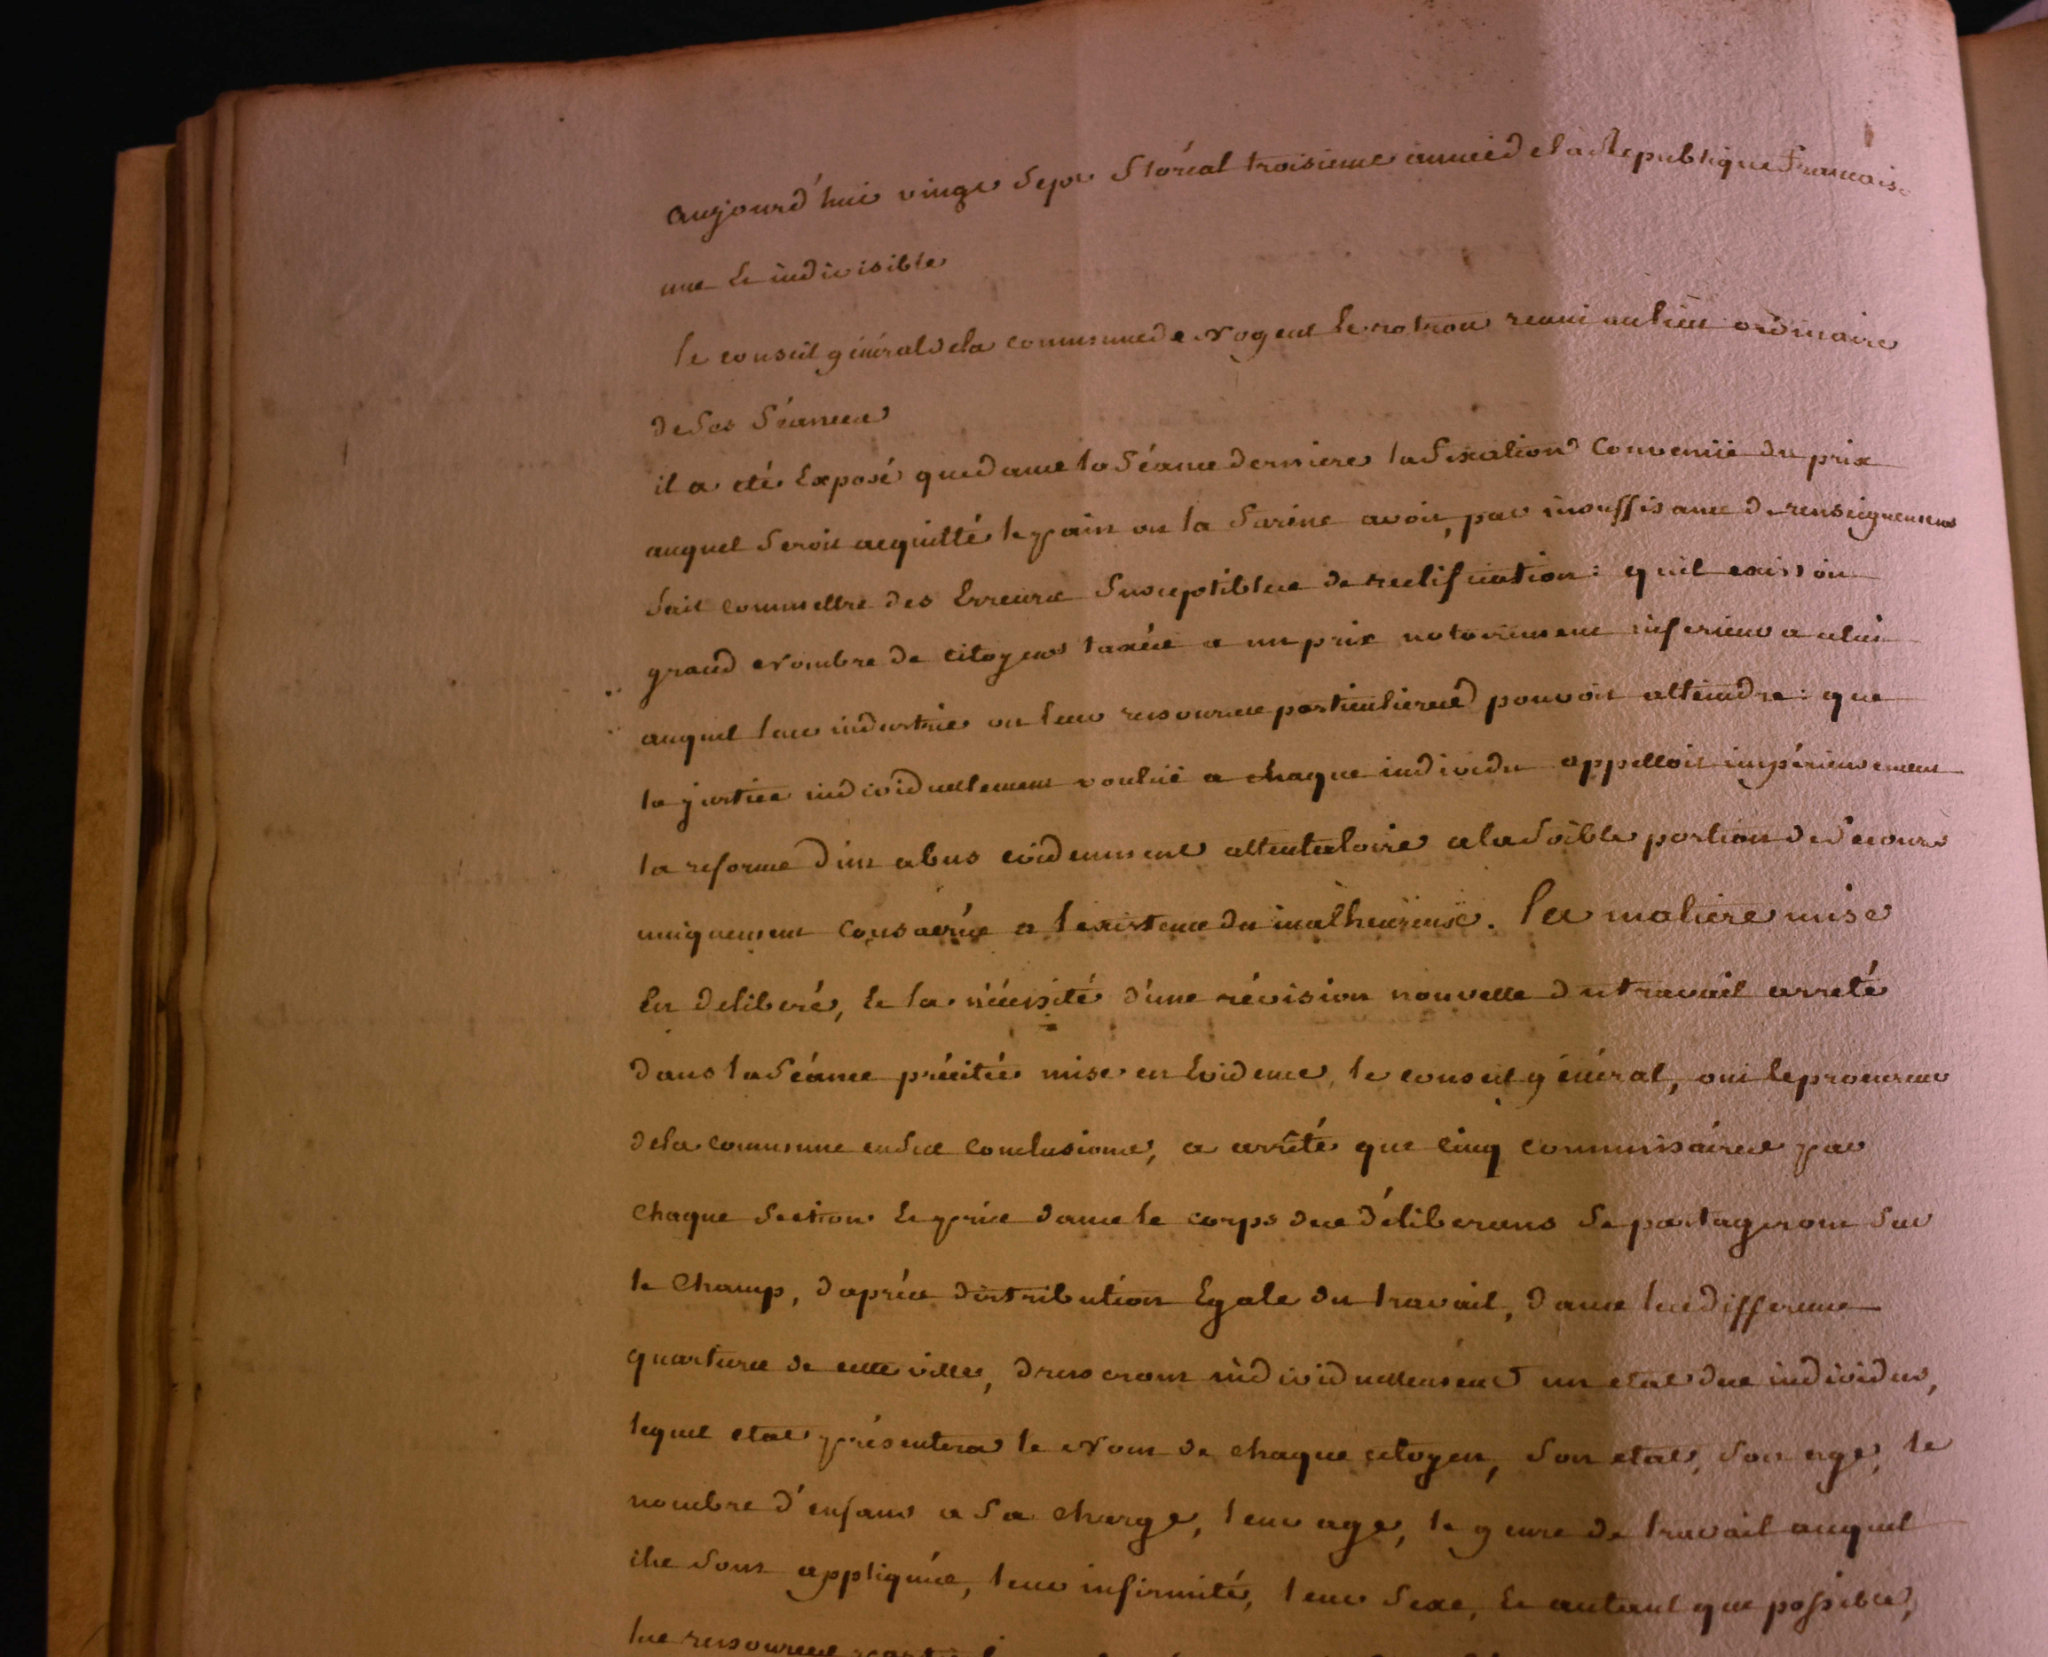 aujourd'hui vingt Sept floréal troisieme année de la Republique francaise
une Et indivisible
le conseil général de la commune de Nogent le rotrou reuni au lieu ordinaire
de Ses Séances
il a eté Exposé que dans la Séance derniere la fixation Convenüe du prix
auquel Seroit acquitté le pain ou la farine avoit, par insuffisance de renseignemens
fait commettre des Erreurs Susceptibles de rectification: quil existoit
grand Nombre de citoyens taxés a un prix notoirement inferieur a celui
auquel leur industrie ou leurs resources particulieres pouvoit atteindre: que
la justice individuellement vouluë a chaque individu appelloit impérieusement
la reforme d'un abus evidemment attentatoire a la foible portion de Secours
uniquement Consacrée a l'existence du malheureux. la matiere mise
En deliberé, Et la nécessité d'une révision nouvelle du travail arreté
dans la Séance précitée mise en Evidence, le conseil général, oui le procureur
de la commune en Ses Conclusions, a arrêté que Cinq commissaires par
Chaque Section Et pris dans le corps des déliberans Se partageront Sur
le Champ, d'après distribution Egale du travail, dans les differens
quartiers de cette ville, dresseront individuellement un etat des individus,
lequel etat présentera le Nom de chaque citoyen, Son etat, Son age, le
nombre d'enfans a Sa charge, leur age, le genre de travail auquel
ils Sont appliqués, leur infirmité, leur Sexe, Et autant que possible,
les resources